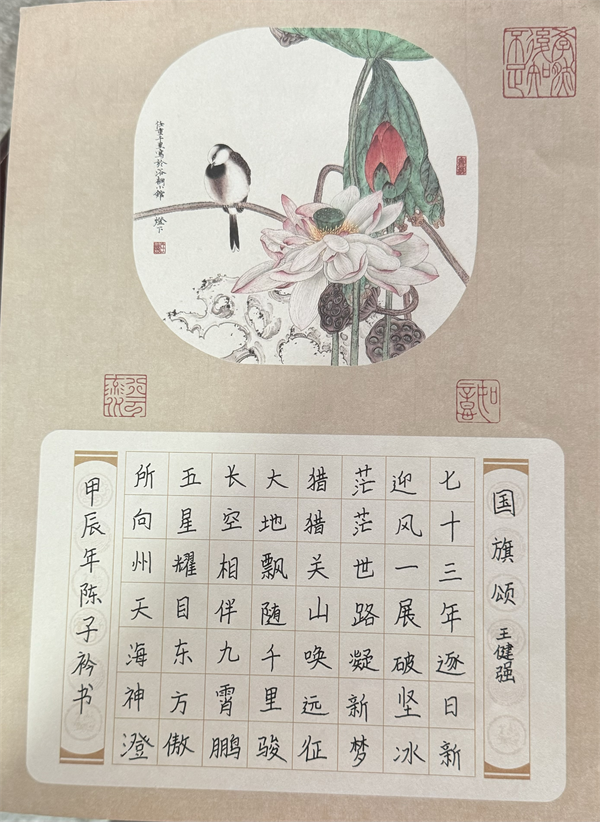 国旗颂 王健强
七十三年逐日新
迎风一展破坚冰
茫茫世路凝新梦
猎猎关山唤远征
大地飘随千里骏
长空相伴九霄鹏
五星耀目东方傲
所向州天海神澄
甲辰年陈子衿书